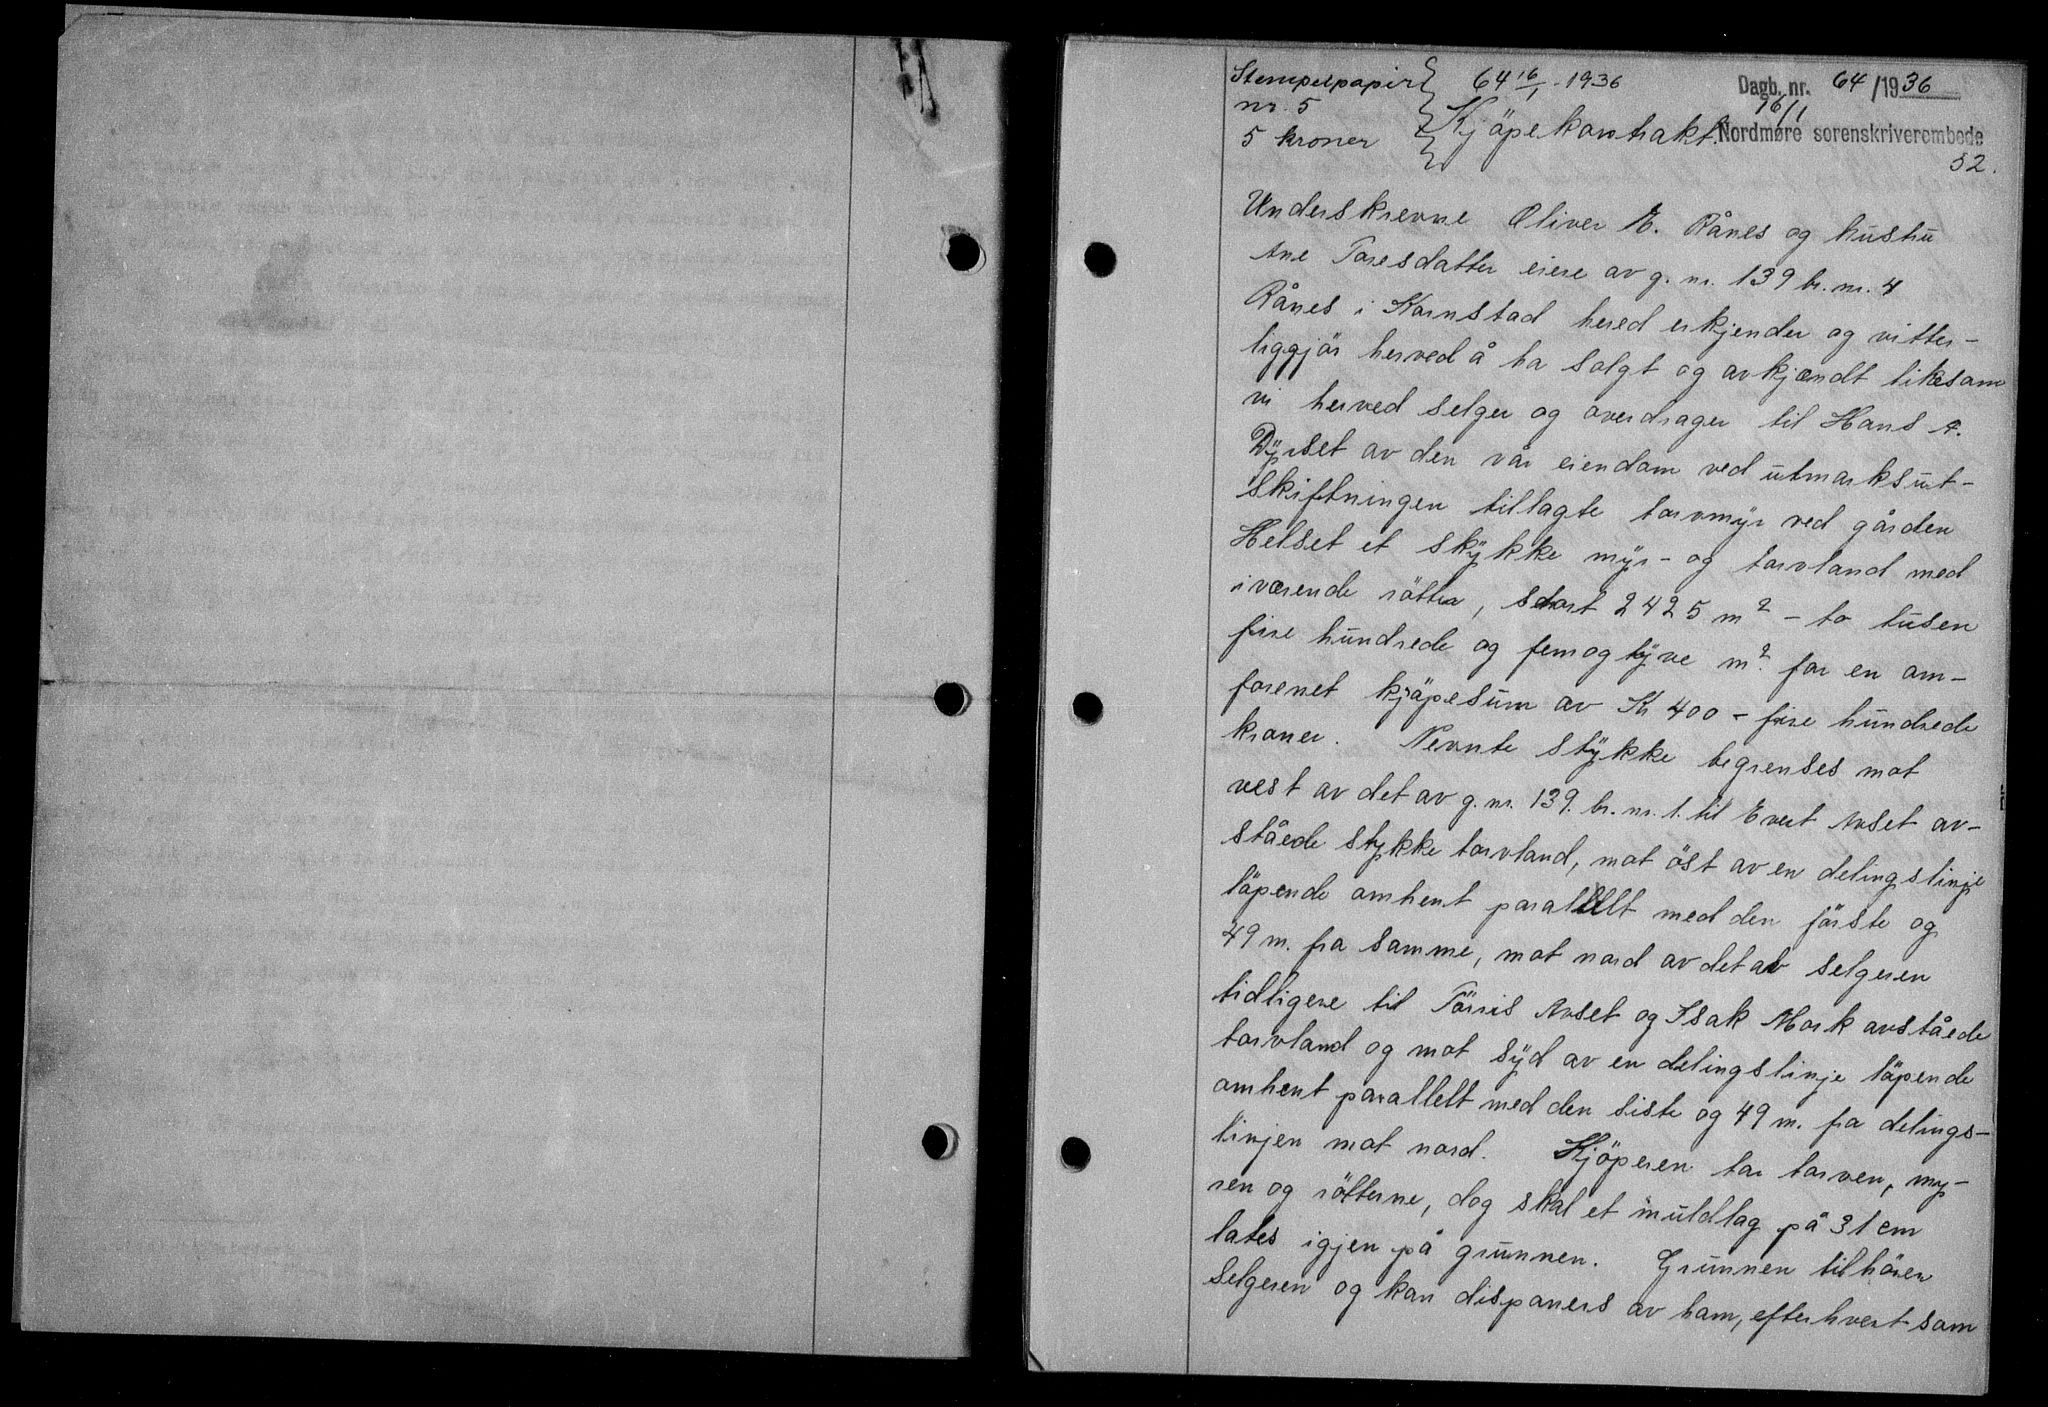 Stempelpapir
nr. 5
5 kroner
64 16/1 - 1936
Kjöpekontrakt.
Dagb. nr. 64/1936
16/1
Nordmøre sorenskriverembede
52.
Underskrevne Oliver E. Rånes og hustru
Ane Toresdatter eiere av g. nr. 139 br. nr. 4
Rånes i Kornstad hered erkjender og vitter-
liggjör herved å ha solgt og avkjændt likesom
vi herved selger og overdrager til Hans A.
Dÿrset av den vår eiendom ved utmarksut-
skiftningen tillagte torvmÿr ved gården
Helset et stÿkke mÿr- og torvland med
iværende rötter, stort 2425 m² - to tusen
fire hundrede og femogtÿve m² for en om-
forenet kjöpesum av Kr 400 - fire hundrede
kroner. Nevnte stÿkke begrenses mot
vest av det av g. nr. 139. br. nr. 1. til Evert Aset av-
ståede stykke torvland, mot öst av en delingslinje
löpende omhent parallelt med den förste og
49 m. fra samme, mot nord av det av selgeren
tidligere til Törris Aset og Isak Mork avståede
torvland og mot sÿd av en delingslinje löpende
omhent parallelt med den siste og 49 m. fra delings-
linjen mot nord. Kjöperen tar torven, my-
ren og rötterne, dog skal et muldlag på 31 cm
lates igjen på grunnen. Grunnen tilhörer
selgeren og kan disponers av ham, efterhvert som